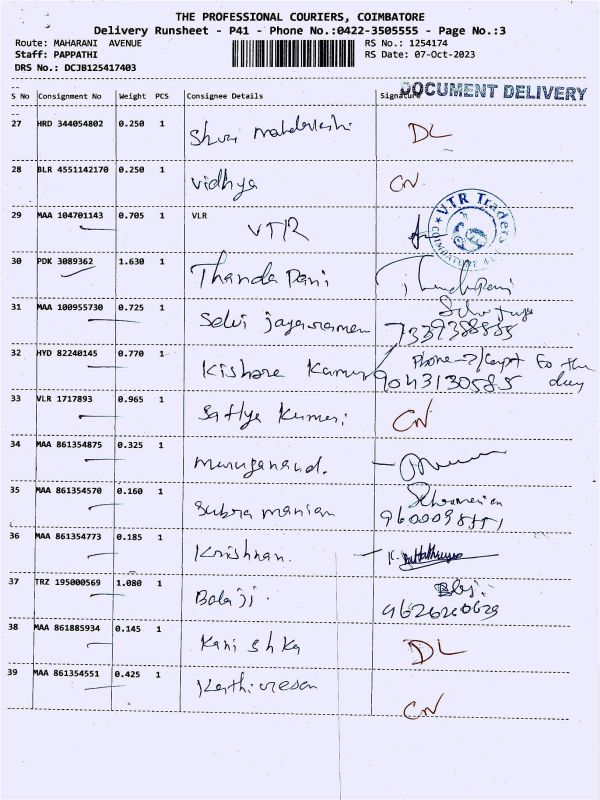 THE PROFESSIONAL COURIERS, COIMBATORE
Delivery Runsheet - P41 - Phone No.:0422-3505555 - Page No.:3
Route: MAHARANI AVENUE RS No.: 1254174
Staff: PAPPATHI RS Date: 07-Oct-2023
DRS No.: DCJB125417403
DOCUMENT DELIVERY
S No Consignment No Weight PCS Consignee Details Signature
27 HRD 344054802 0.250 1 Shri Mahalakshi DL
28 BLR 4551142170 0.250 1 Vidhya CN
29 MAA 104701143 0.705 1 VLR
VTR
VTR Traders
COIMBATORE
30 PDK 3089362 1.630 1 Thanda Pani
31 MAA 100955730 0.725 1 Selvi jayaraman
7339388885
32 HYD 82240145 0.770 1 Kishore Kumar
9043130585
33 VLR 1717893 0.965 1 Sathya Kumari CN
34 MAA 861354875 0.325 1 Muruganand.
35 MAA 861354570 0.160 1 Subra manian
36 MAA 861354773 0.185 1 Krishnan.
37 TRZ 195000569 1.080 1 Balaji.
38 MAA 861885934 0.145 1 Kani shka DL
39 MAA 861354551 0.425 1 Kathiresan CN